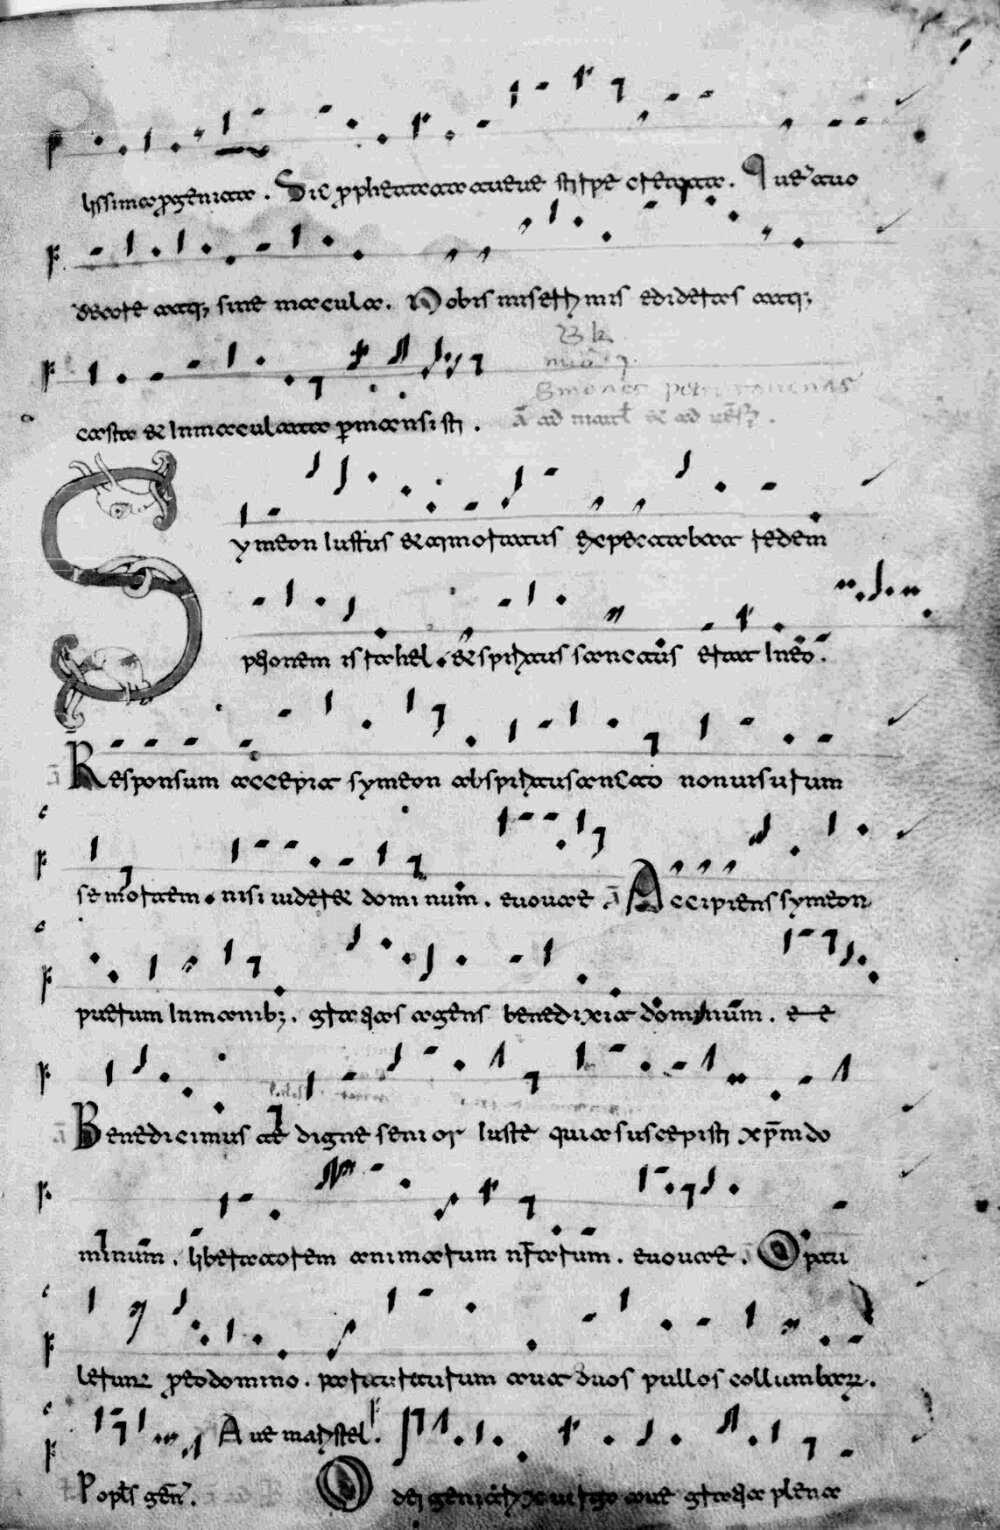 lissima progeniae. Sic prophetata aueue stirpe creata. Quae auo
deo te atq; sine macula. Nobis misetri mis edideras atq;
casta & Inmaculata permansisti.
ā ad matut & ad uesp.
Symeon Iustus & timoratus expectabat redem
ptionem israhel. & spiritus sanctus erat In eo.
Responsum accepit symeon ab spiritu sancto non uisurum
se mortem. nisi uideret dominum. euouae ā Accipiens symeon
puerum Inmanib;. gratias agens benedixit dominum. e e
Benedicimus te digne senior Iuste quia suscepisti xp̄m do
minum. liberatorem animarum nrarum. euouae. Opatu
letunr pro eo domino. par turturum aut duos pullos collumbarum.
Popls gen. Aue maris stel.
O dei genitrix uirgo aue gratia plena